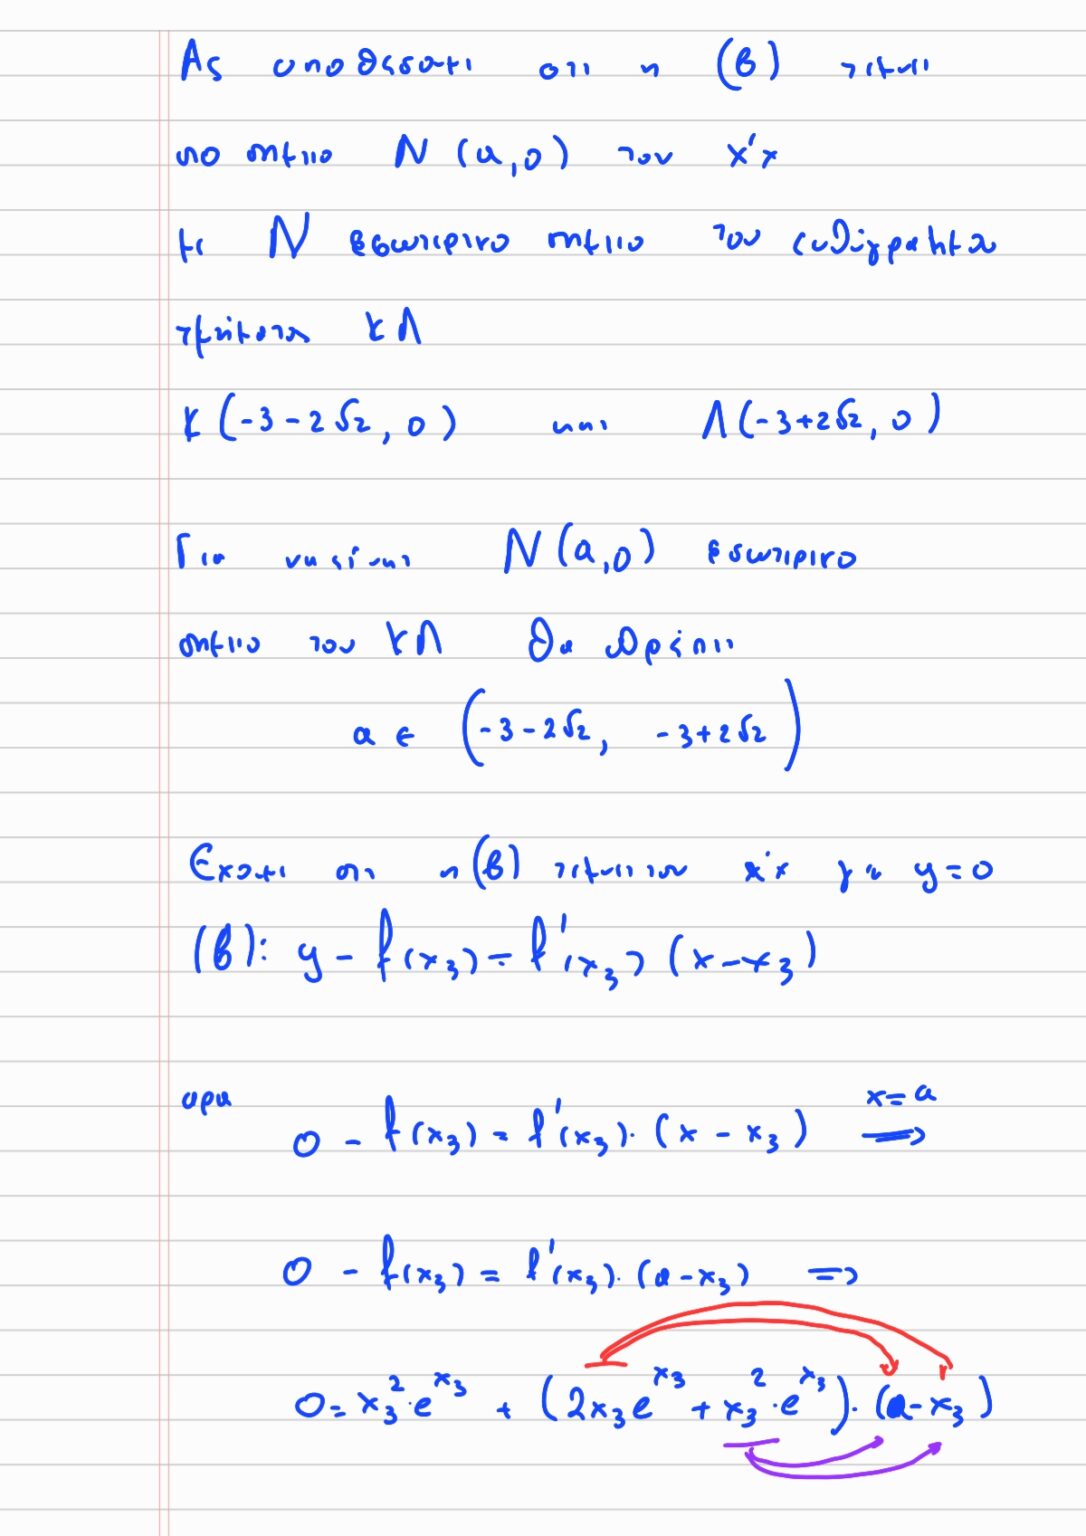 Ας υποθεσουμε οτι η (ε) τεμνει
το σημειο Ν (α,0) του x'x
με Ν εσωτερικο σημειο του ευθύγραμμου
τμήματος ΚΛ
Κ (-3-2√2, 0) και Λ(-3+2√2, 0)
Για να είναι Ν(α,0) εσωτερικο
σημειο του ΚΛ θα πρέπει
α ∈ (-3-2√2, -3+2√2)
Εχουμε οτι η (ε) τεμνει τον x'x για y=0
(ε): y - f(x₃) = f'(x₃) (x-x₃)
αρα 0 - f(x₃) = f'(x₃)·(x-x₃) x=α ⟹
0 - f(x₃) = f'(x₃)·(α-x₃) ⟹
0 = x₃²·e^x₃ + (2x₃e^x₃ + x₃²·e^x₃)·(α-x₃)